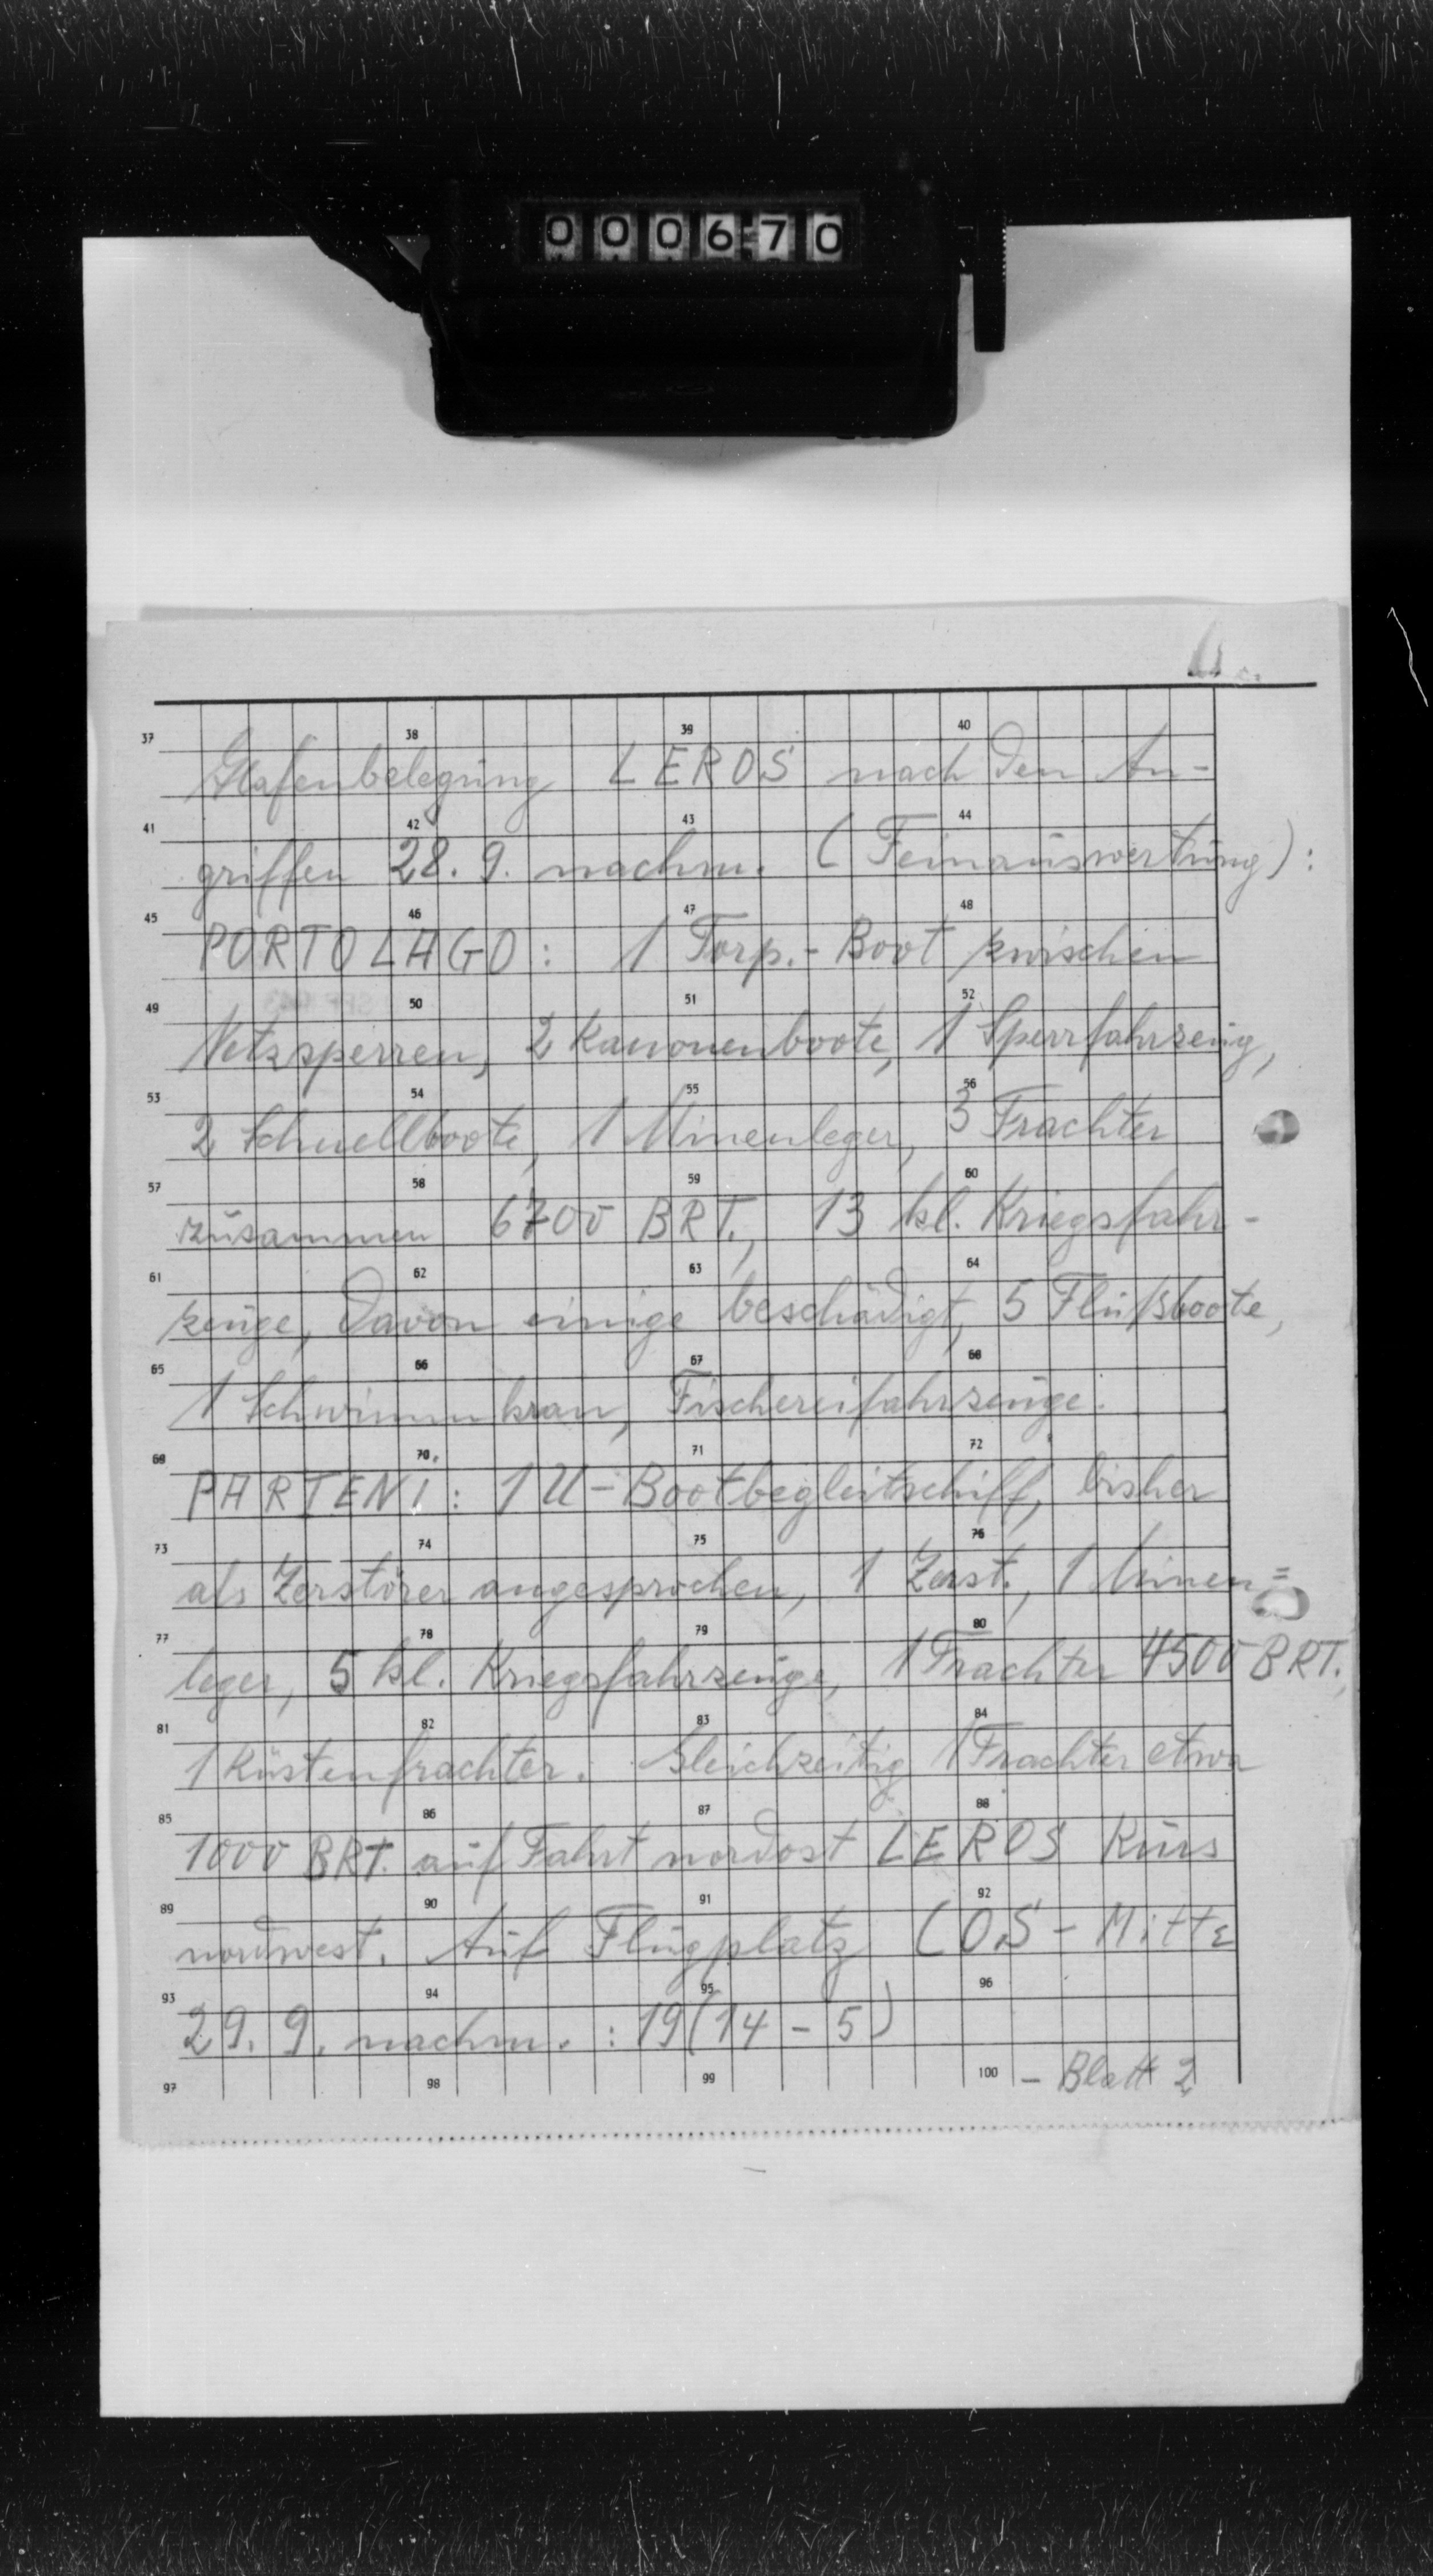 000670
37 38 39 40
Hafenbelegung LEROS nach den An-
41 42 43 44
griffen 28.9. nachm. (Feinauswertung):
45 46 47 48
PORTOLAGO: 1 Torp.-Boot zwischen
49 50 51 52
Netzsperren, 2 Kanonenboote, 1 Sperrfahrzeug,
53 54 55 56
2 Schnellboote, 1 Minenleger, 3 Frachter
57 58 59 60
zusammen 6700 BRT., 13 kl. Kriegsfahr-
61 62 63 64
zeuge, davon einige beschädigt, 5 Flußboote,
65 66 67 68
1 Schwimmkran, Fischereifahrzeuge.
69 70 71 72
PARTENI: 1 U-Bootbegleitschiff, bisher
73 74 75 76
als Zerstörer angesprochen, 1 Zerst., 1 Minen=
77 78 79 80
leger, 5 kl. Kriegsfahrzeuge, 1 Frachter 4500 BRT.,
81 82 83 84
1 Küstenfrachter. Gleichzeitig 1 Frachter etwa
85 86 87 88
1000 BRT. auf Fahrt nordost LEROS Kurs
89 90 91 92
nordwest. Auf Flugplatz COS-Mitte
93 94 95 96
29.9. nachm.: 19(14-5)
97 98 99 100 - Blatt 2